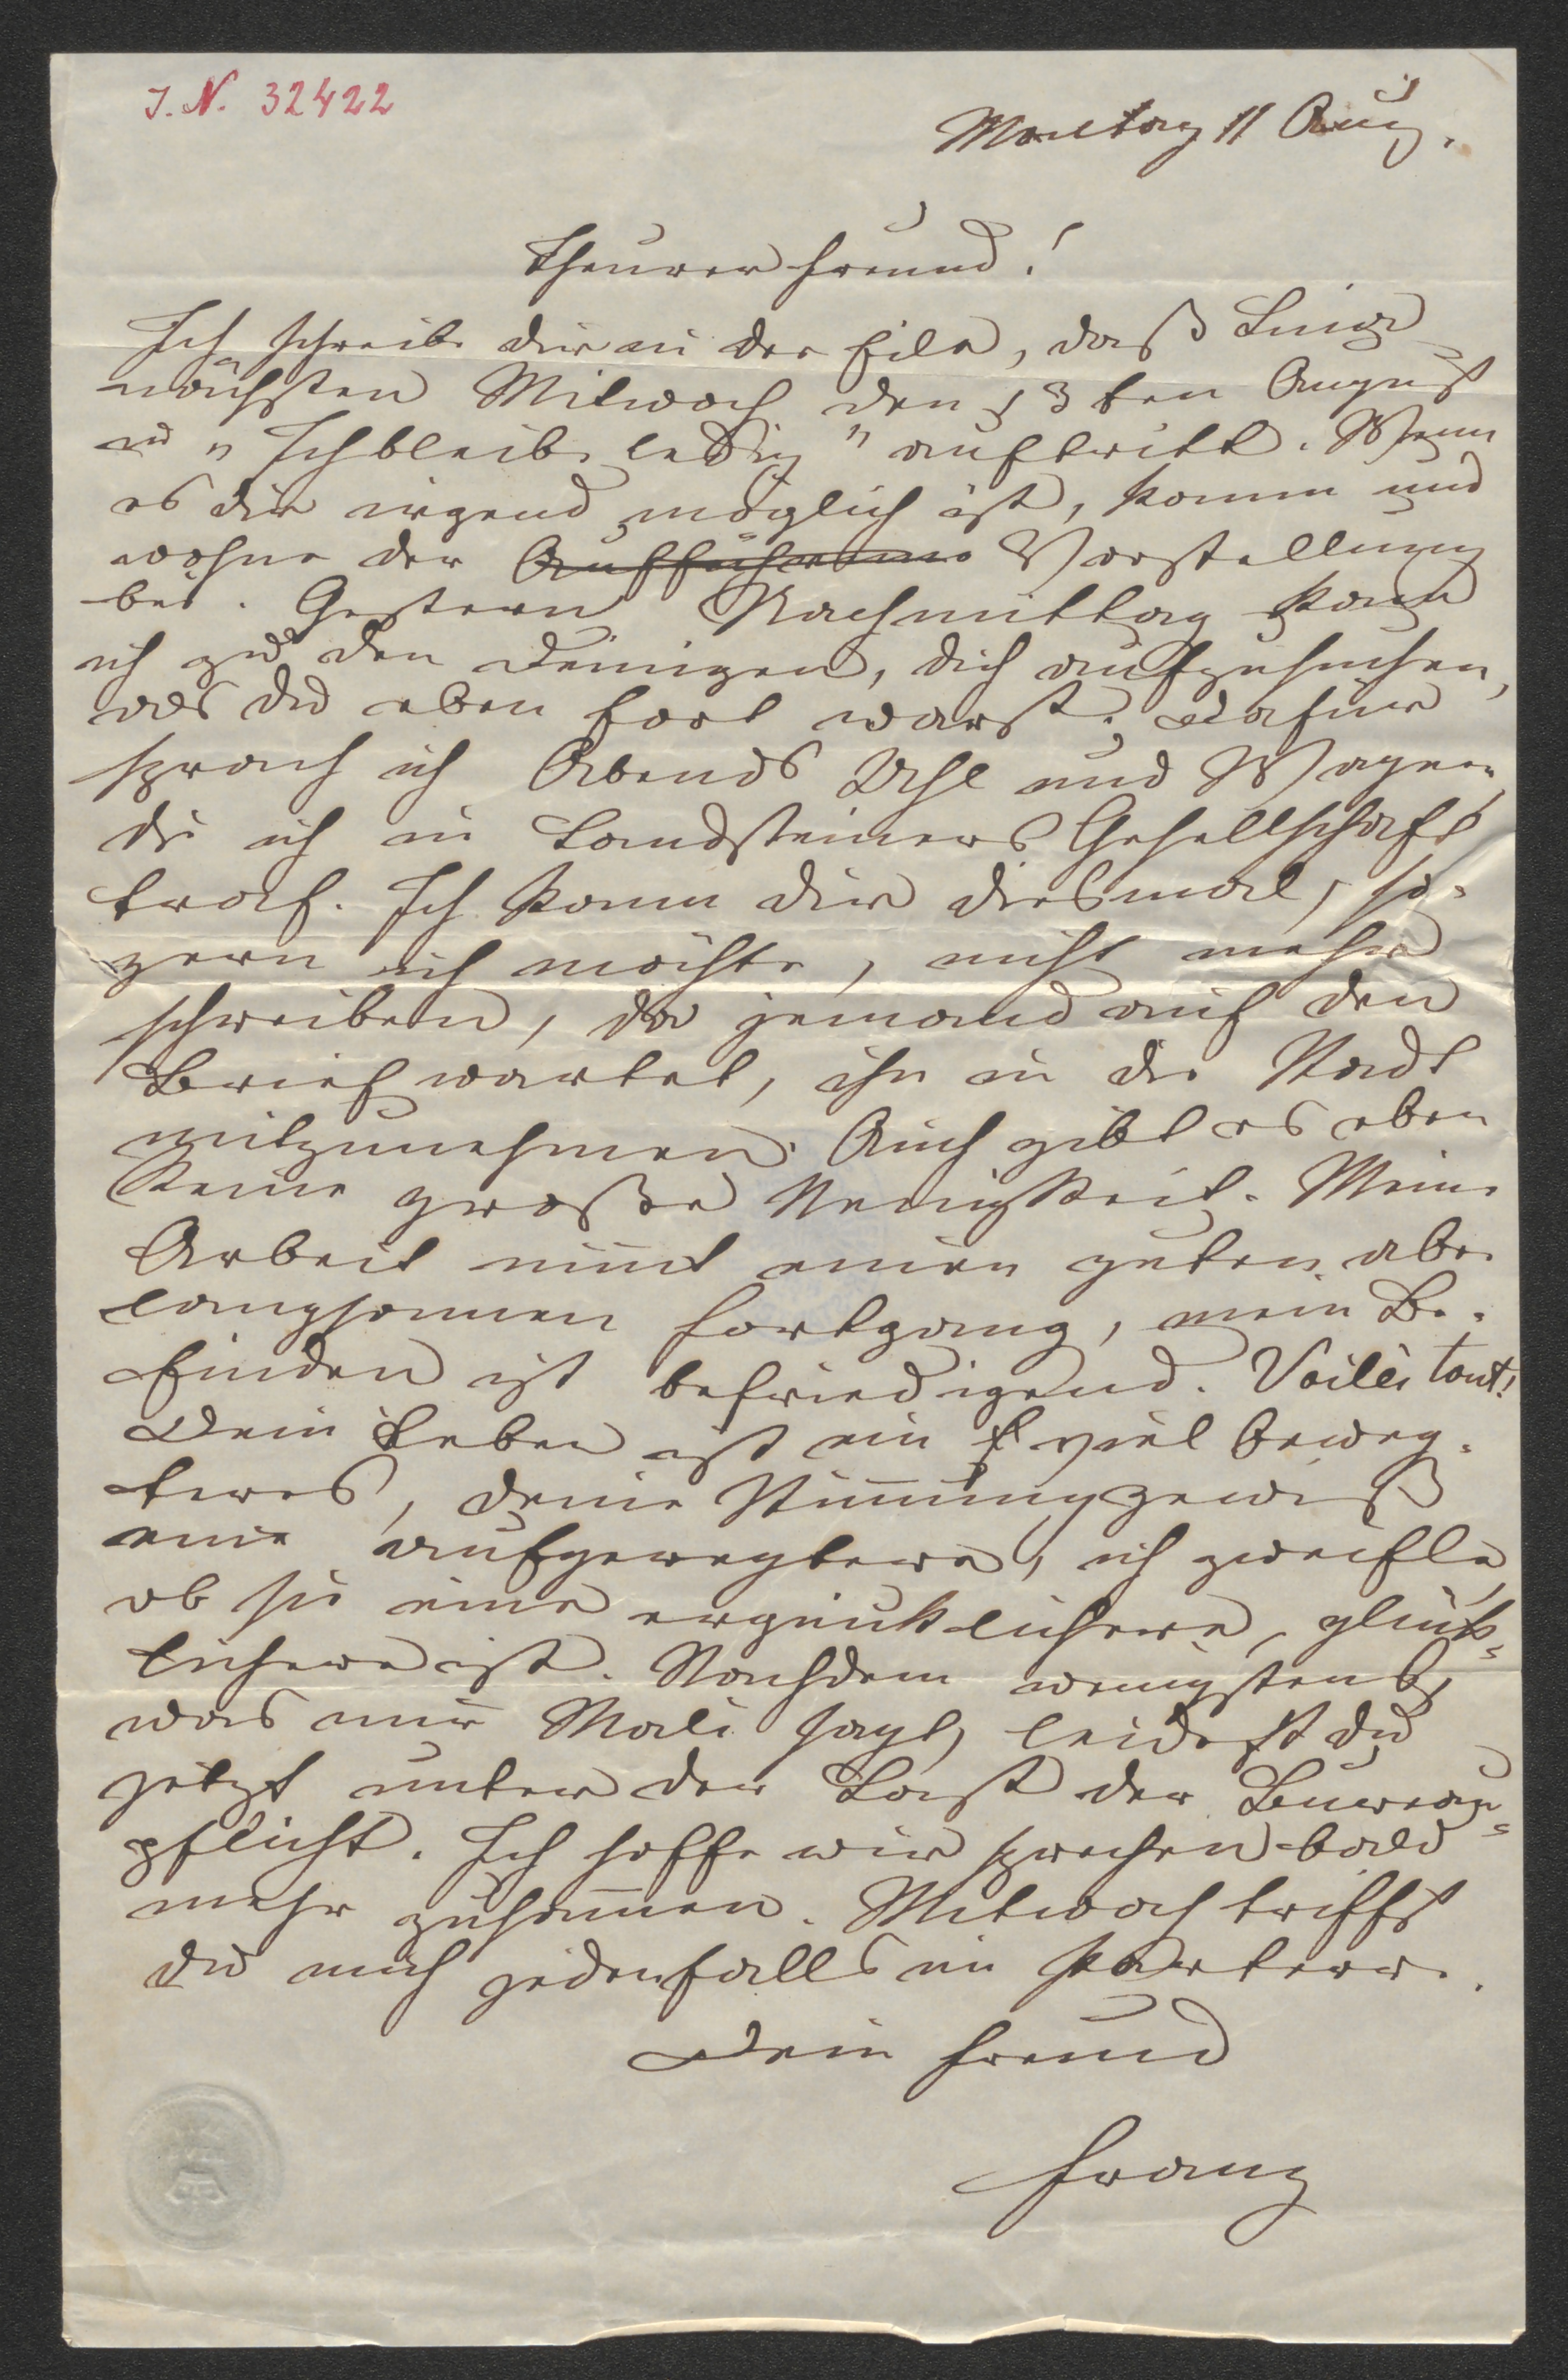 J. N. 32422
Montag 11 Aug.
Theurer Freund!
Ich schreibe dir in der Eile, daß Luise
nächsten Mitwoch den 13ten August
in „Ich bleibe ledig" auftritt. Wenn
es dir irgend möglich ist, komm und
wohne der Aufführung Vorstellung
bei. Gestern Nachmittag kam
ich zu den Deinigen, dich aufzusuchen,
als du eben fort warst; dafür
sprach ich Abends Uhl und Wagner,
die ich in Landsteiners Gesellschaft
traf. Ich kann dir diesmal, so
gern ich möchte, nicht mehr
schreiben, da jemand auf den
Brief wartet, ihn in die Stadt
mitzunehmen. Auch gibt es eben
keine große Neuigkeit. Meine
Arbeit nim̄t einen guten aber
langsamen Fortgang, mein Be-
finden ist befriedigend. Voilà tout!
Dein Leben ist ein viel beweg-
teres, deine Stim̄ung gewiß
eine aufgeregtere, ich zweifle
ob sie eine erquicklichere, glück-
lichere ist. Nachdem wenigstens,
was mir Mali sagt, leidest du
jetzt unter der Last der Bureau-
pflicht. Ich hoffe wir sprechen bald
mehr zusam̄en. Mitwoch triffst
du mich jedenfalls im Parterre.
Dein Freund
Franz